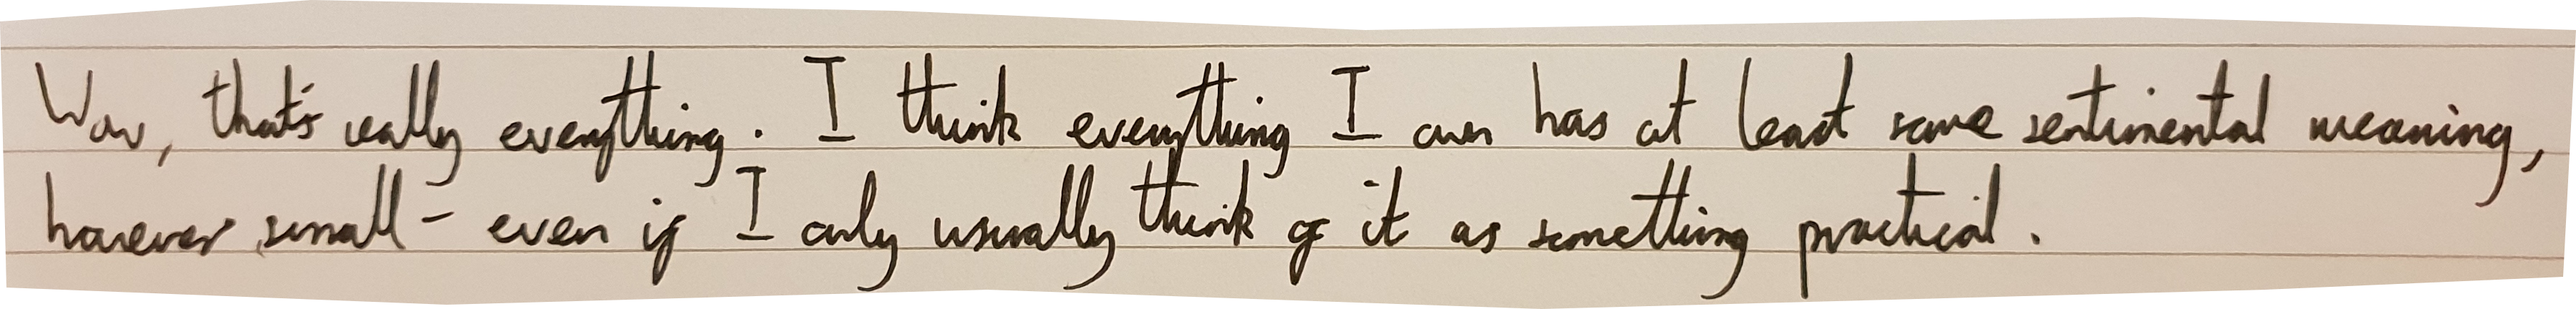 Wow, that's really everything. I think everything I own has at least some sentimental meaning,
however small - even if I only usually think of it as something practical.